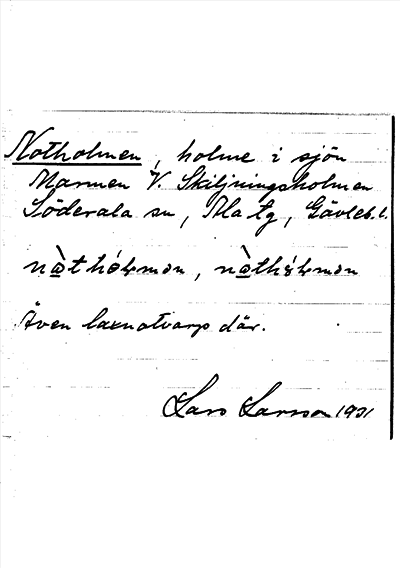 Notholmen, holme i sjön
Marmen V. Skiljningsholmen
Söderala sn, Ala tg, Gävleb. l.
nòthólmən, nòthólmən
Även laxnotvarp där.
Lars Larsson 1931